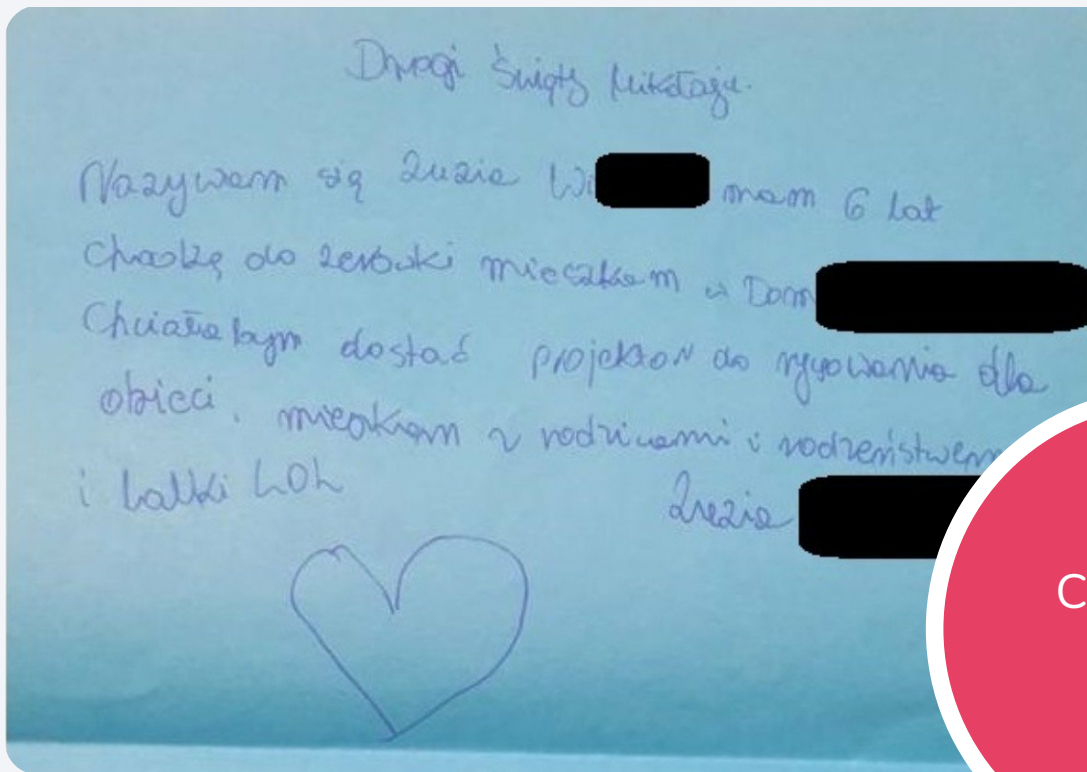 Drogi Święty Mikołaju.
Nazywam się Zuzia Wi mam 6 lat
Chodzę do zerówki mieszkam w Dom
Chciałabym dostać projektor do rysowania dla
dzieci. mieszkam z rodzicami i rodzeństwem
i lalki LOL
Zuzia
C